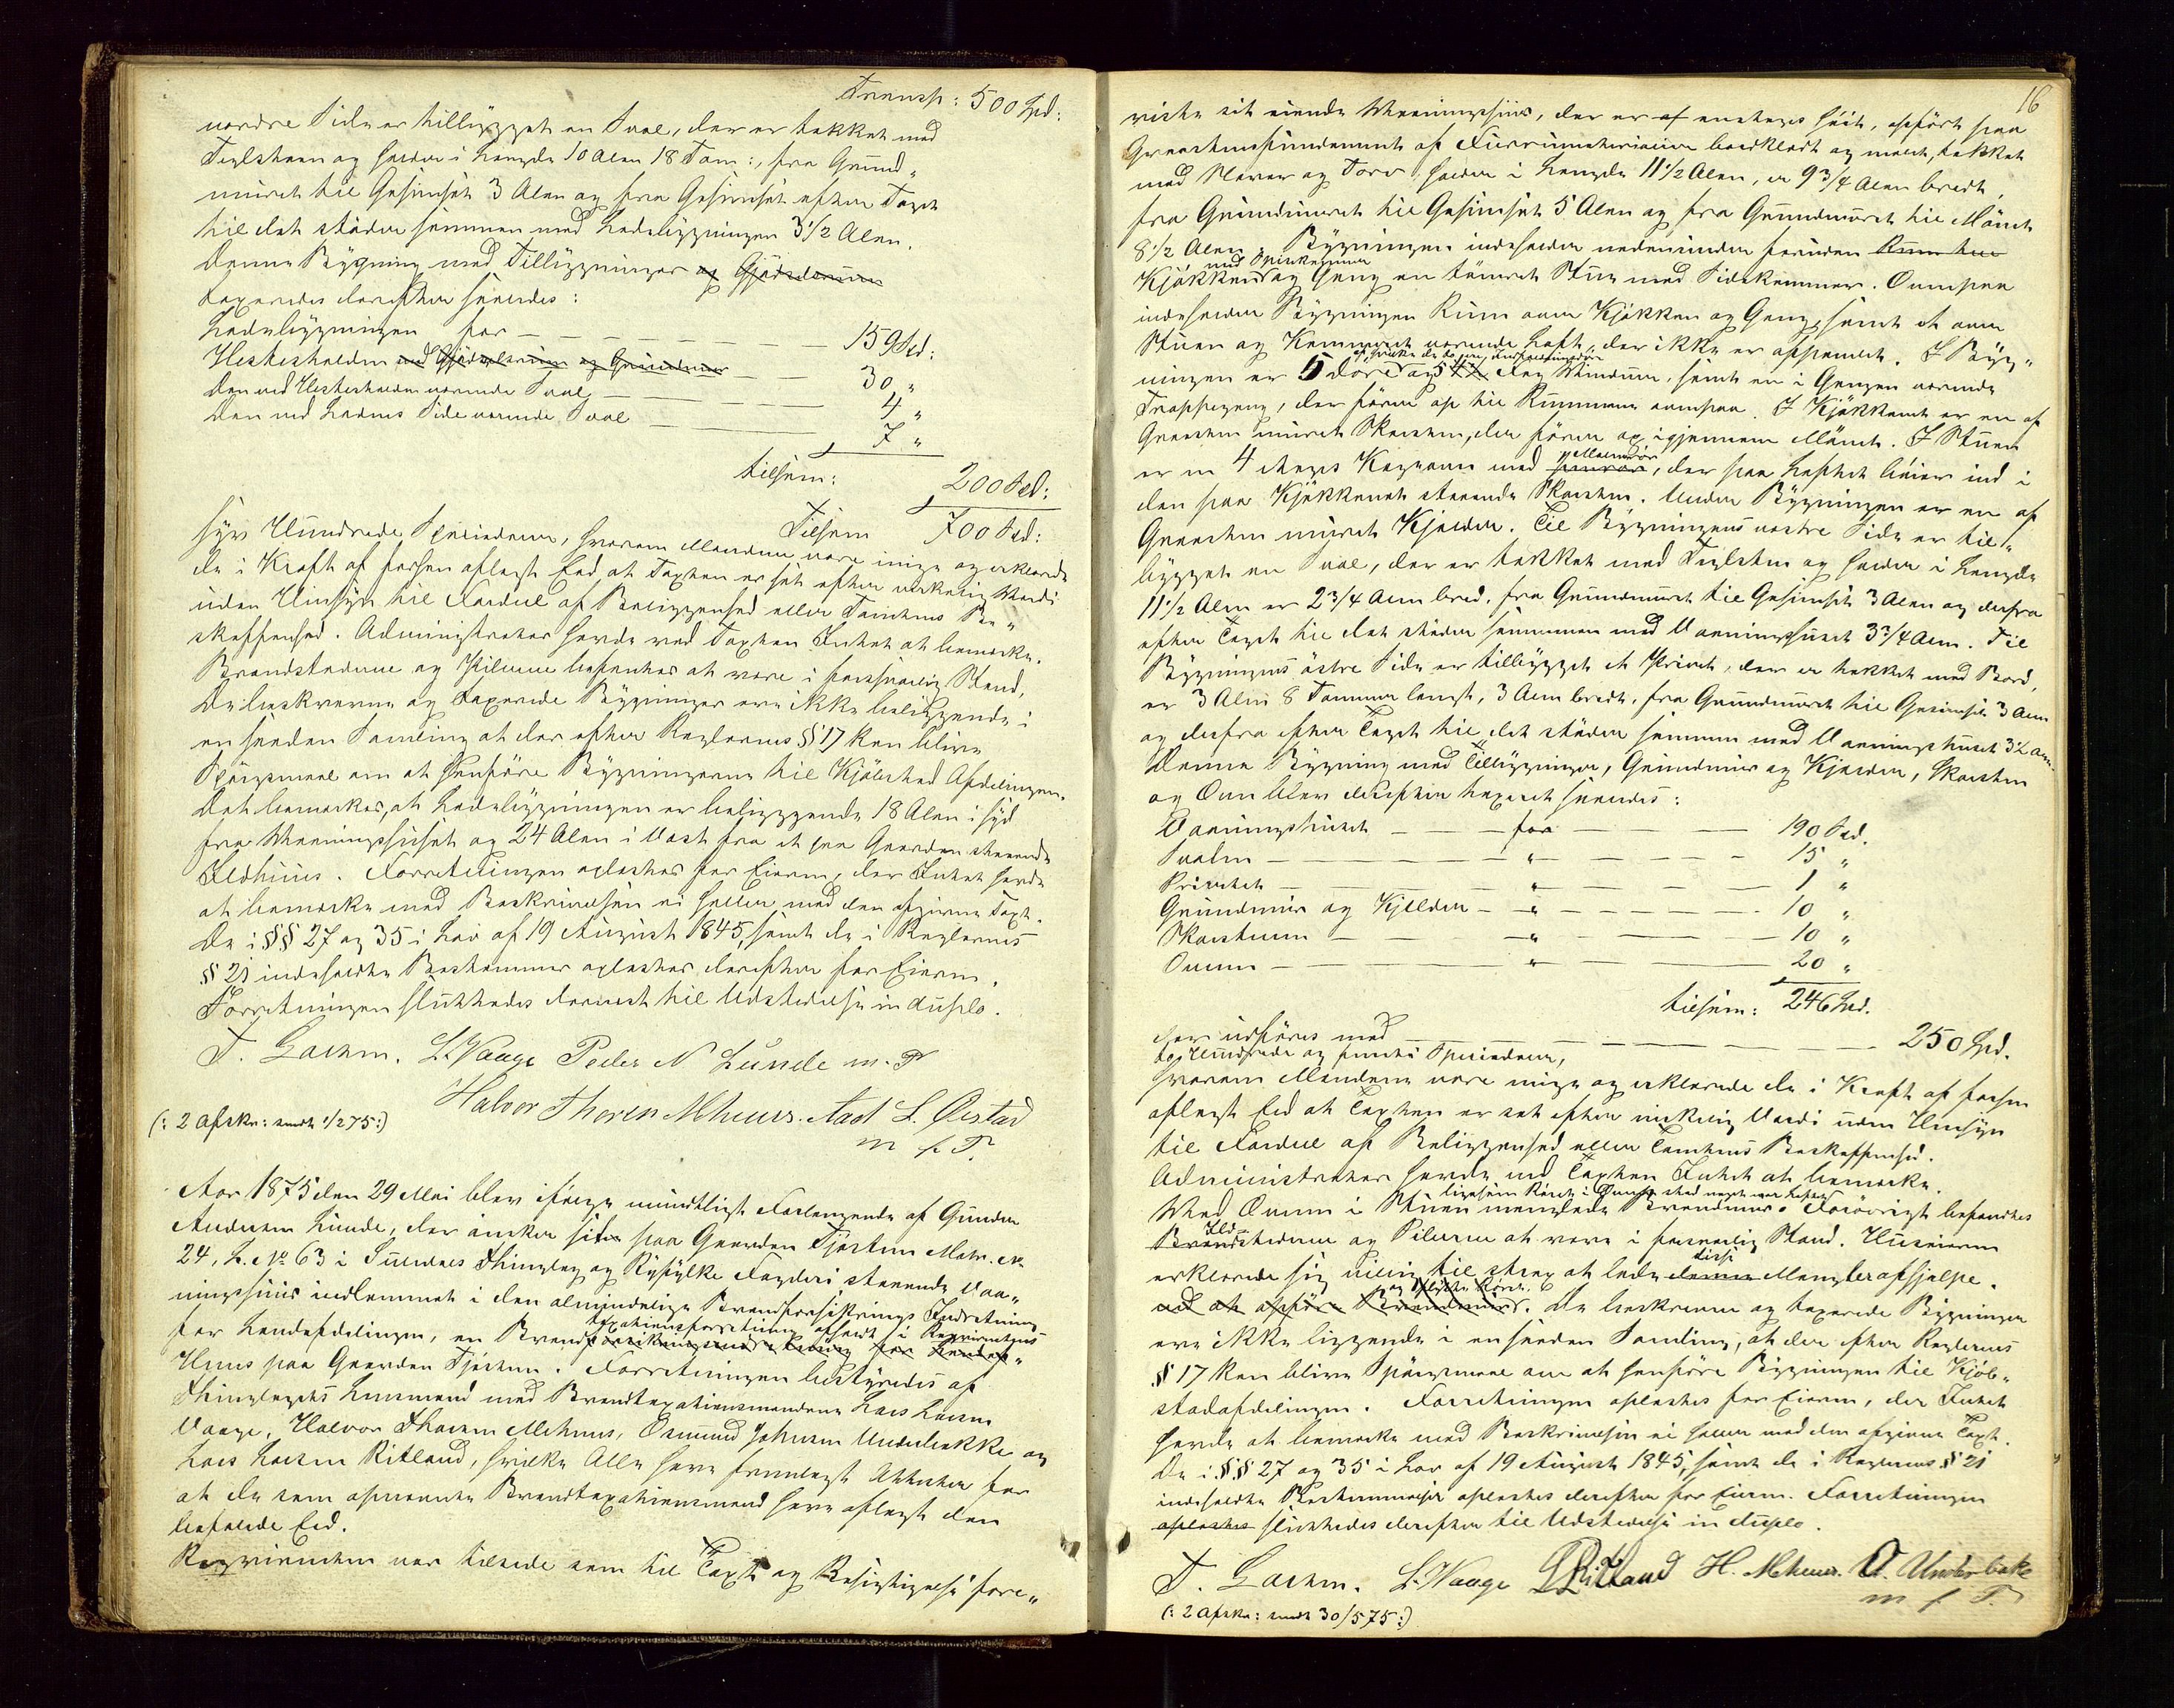 Transp: 500 Spd:
nordre Side er tilbygget en Sval, der er tækket med
Teglsteen og holder i Længde 10 Alen 18 Tom:, fra Grund„
muret til Gesimset 3 Alen og fra Gesimset efter Taget
til det støder sammen med Ladebygningen 3 1/2 Alen.
Denne Bygning med Tilbygninger og Gjødselrum
taxeredes derefter saaledes:
Ladebygningen for — 159 Spd:
Hestestalden med Gjødselrum og Grundmur — 30 „
Den ved Hestestalden værende Sval — 4 „
Den ved Ladens Side værende Sval — 7 „
tilsam: 200 Spd:
Tilsam 700 Spd:
Syv Hundrede Speciedaler, hvorom Mændene vare enige og erklærede
de i Kraft af forhen aflagt Eed, at Taxten er sat efter virkelig Værdi
uden Hensyn til Fordeel af Beliggenhed eller Tomtens Be„
skaffenhed. Administrator havde ved Taxten Intet at bemærke.
Brandstederne og Pilerne befandtes at være i forsvarlig Stand,
De beskrevne og taxerede Bygninger ere ikke beliggende i
en saadan Samling at der efter Reglernes § 17 kan blive
Spørgsmaal om at henføre Bygningerne til Kjøbstad Afdelingen.
Det bemærkes, at Ladebygningen er beliggende 18 Alen i Syd
fra Vaaningshuset og 24 Alen i Vest fra et paa Gaarden staaende
Ildhuus. Forretningen oplæstes for Eieren, der Intet havde
at bemærke med Beskrivelsen ei heller med den afgivne Taxt.
De i §§ 27 og 35 i Lov af 19 August 1845, samt de i Reglernes
§ 21 indeholdte Bestemmelser oplæstes derefter for Eieren.
Forretningen sluttedes dernæst til Udstedelse in duplo.
T. Larsen. L. Vaage Peder N Lunde m. P
Halvor Thorsen Mehuus. Aad L. Østad
m f P.
(: 2 Afskr: sendt 1/2 75:)
Aar 1875 den 29 Mai blev ifølge mundtligt Forlangende af Gunder
Andersen Lunde, der ønsker sit paa Gaarden Tjøstem Matr. No
24, L. No 63 i Suledals Thinglag og Ryfylke Fogderi staaende Vaa„
ningshuus indlemmet i den almindelige Brandforsikrings Indretning
taxationsforretning afholdt i Reqvirentens
for Landafdelingen, en Brandforsikrings for Landaf„
Huus paa Gaarden Tjøstem. Forretningen bestyredes af
Thinglagets Lensmand med Brandtaxationsmændene Lars Larsen
Vaage, Halvor Thorsen Mehuus, Osmund Johnsen Underbakke og
Lars Larsen Ritland, hvilke Alle have fremlagt Attester for
at de som opnævnte Brandtaxationsmænd have aflagt den
befalede Eed.
Reqvirenten var tilstede som til Taxt og Besigtigelse fore„
16
viste sit eiende Vaaningshuus, der er af en Etages Høide, opført paa
Graasteensfundament af Furrumaterialier bordklædt og malet, tækket
med Næver og Torv, holder i Længde 11 1/2 Alen, er 9 3/4 Alen bredt,
fra Grundmuret til Gesimset 5 Alen og fra Grundmuret til Mønet
8 1/2 Alen. Bygningen indeholder nedenunder foruden Rum til
med Spisekammer
Kjøkken og Gang en tømret Stue med Sidekammer. Ovenpaa
indeholder Bygningen Rum over Kjøkken og Gang, samt et over
Stuen og Kammeret værende Loft, der ikke er oppanelet. I Byg„
af hvilke de to ere
ningen er 5 Døre og 5 Fag Vinduer, samt en i Gangen værende
Trappegang, der fører op til Rummene ovenpaa. I Kjøkkenet er en af
Graasteen muret Skorsteen, der fører op igjennem Mønet. I Stuen
er en 4 Etages Kogeovn med, der paa Loftet bøier ind i
den paa Kjøkkenet staaende Skorsteen. Under Bygningen er en af
Graasteen muret Kjælder. Til Bygningens vestre Side er til„
bygget en Sval, der er tækket med Teglsteen og holder i Længde
11 1/2 Alen er 2 3/4 Alen bred, fra Grundmuret til Gesimset 3 Alen og derfra
efter Taget til det støder sammen med Vaaningshuset 3 3/4 Alen. Til
Bygningens østre Side er tilbygget et Privet, der er tækket med Bord,
er 3 Alen 8 Tommer langt, 3 Alen bredt, fra Grundmuret til Gesimset 3 Alen
og derfra efter Taget til det støder sammen med Vaaningshuset 3 1/2 Alen.
Denne Bygning med Tilbygninger, Grundmur og Kjælder, Skorsteen
og Ovn blev derefter taxeret saaledes:
Vaaningshuset — for — 190 Spd.
Svalen — „ — 15 „
Privetet — „ — 1 „
Grundmur og Kjelder — „ — 10 „
Skorstenen — „ — 10 „
Ovnen — „ — 20 „
tilsam: 246 Spd.
der udføres med — 250 Spd.
to Hundrede og femti Speciedaler,
hvorom Mændene vare enige og erklærede de i Kraft af forhen
aflagt Eed at Taxten er sat efter virkelig Værdi uden Hensyn
til Fordeel af Beliggenhed eller Tomtens Beskaffenhed.
Administrator havde ved Taxten Intet at bemærke.
Ved Ovnen i Stuen manglede Brandmur. Forøvrigt befandtes
Ild
Brandstederne og Pilerne at være i forsvarlig Stand. Huseieren
disse
erklærede sig villig til strax at lade denne Mangler afhjælpe.
ved at opføre Brandmur. De beskrevne og taxerede Bygninger
ere ikke liggende i en saadan Samling, at der efter Reglernes
§ 17 kan blive Spørgsmaal om at henføre Bygningen til Kjøb„
stadafdelingen. Forretningen oplæstes for Eieren, der Intet
havde at bemærke med Beskrivelsen ei heller med den afgivne Taxt.
De i §§ 27 og 35 i Lov af 19 August 1845, samt de i Reglernes § 21
indeholdte Bestemmelser oplæstes derefter for Eieren. Forretningen
oplæstes sluttedes derefter til Udstedelse in duplo.
T. Larsen. L. Vaage L L Ritland H. Mehuus. O. Underbake
m f P.
(: 2 Afskr: sendt 30/5 75:)